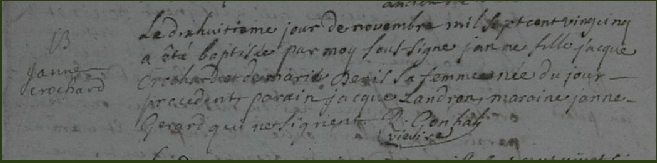 B
Janne
Crochard
Le dixhuitieme jour de novembre mil sept cent vingcinq
a été baptisée par moy soussigne janne fille jacque
Crochard et de marie Benis sa femme née du jour
precedent parain jacque Landran, maraine janne
Gerard qui ne signent
vicaire